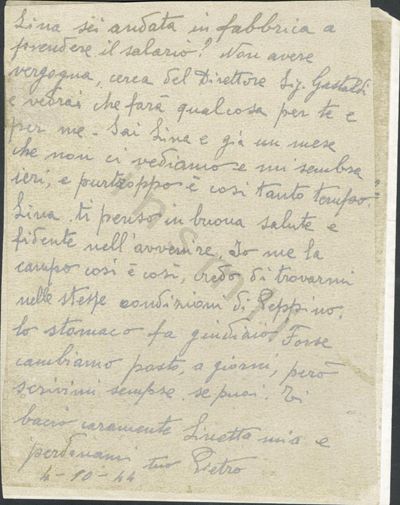 Lina sei andata in fabbrica a
prendere il salario? Non avere
vergogna, cerca del Direttore Sig. Gastaldi
e vedrai che farà qualcosa per te e
per me. Sai Lina e già un mese
che non ci vediamo e mi sembra
ieri, e purtroppo è così tanto tempo.
Lina. ti penso in buona salute e
fidente nell'avvenire. Io me la
campo così è così, credo di trovarmi
nelle stesse condizioni di Peppino.
lo stomaco fa giudizio Forse
cambiamo posto, a giorni, però
scrivimi sempre se puoi. Ti
bacio caramente Linetta mia e
perdonami tuo Pietro
4-10-44